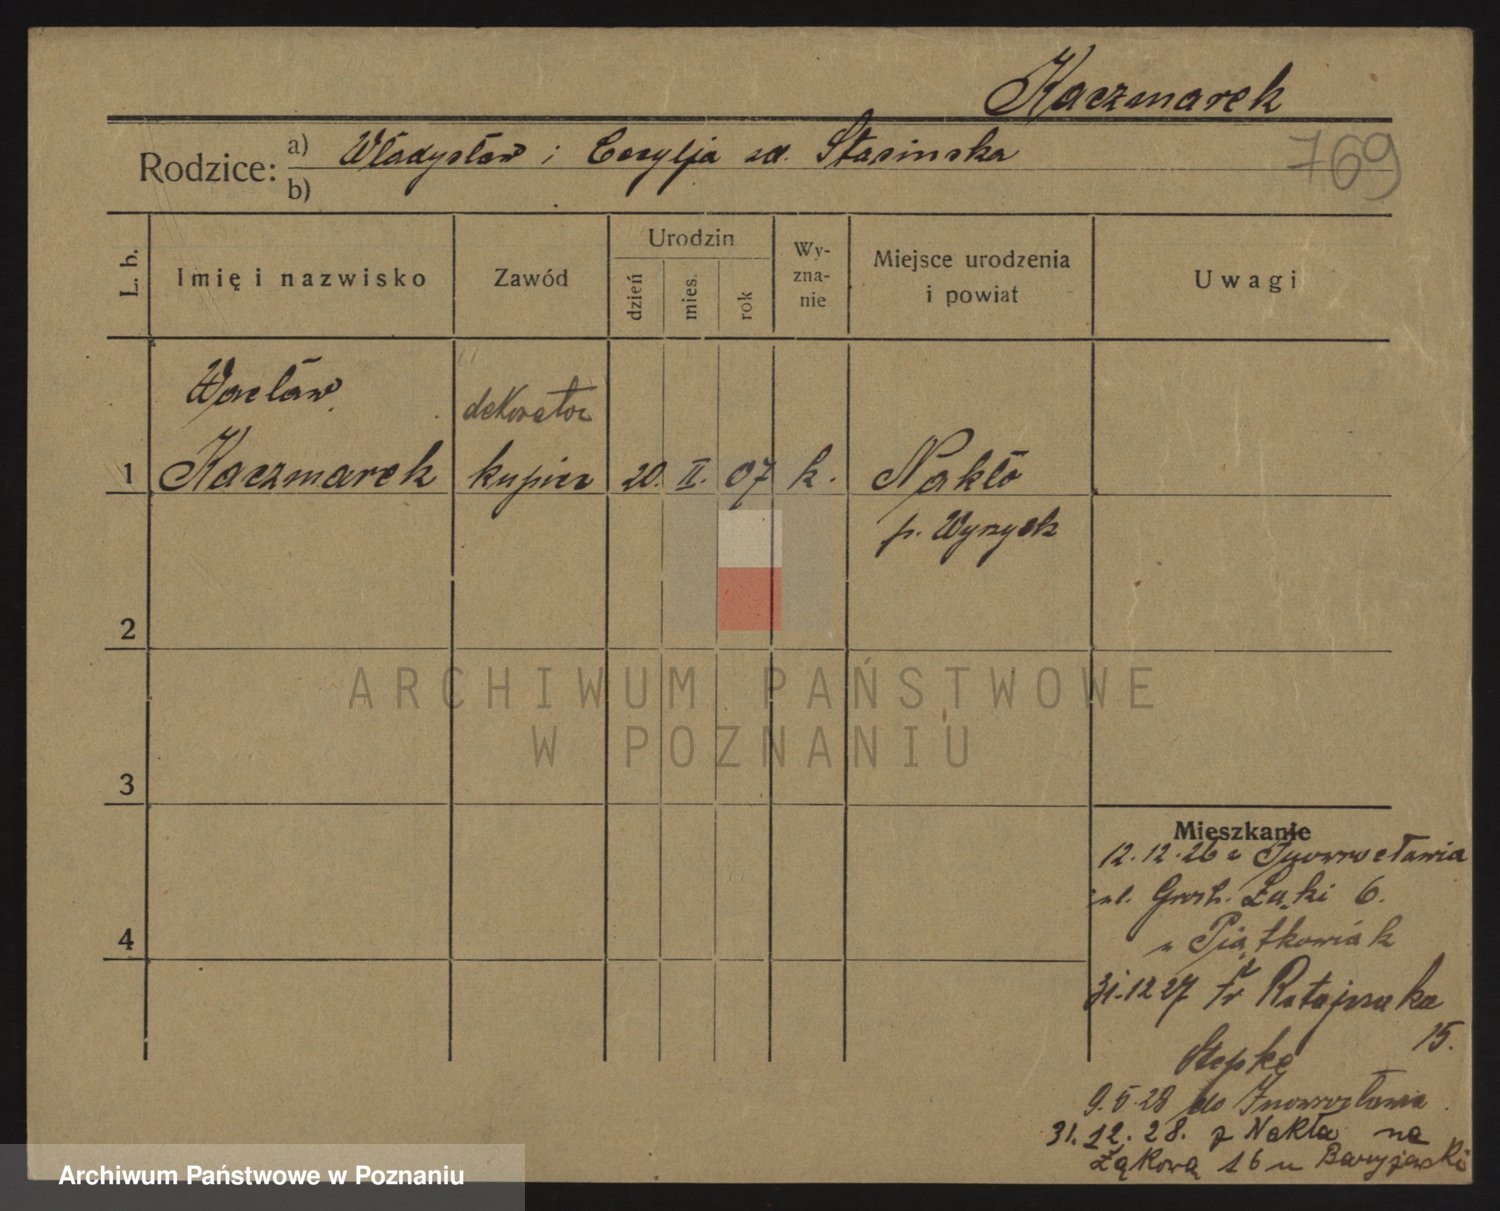 Kaczmarek
Rodzice: a) Władysław i Cecylja zd. Stasinska
b)
769
L. b.
Imię i nazwisko
Zawód
Urodzin
dzień
mies.
rok
Wy-
zna-
nie
Miejsce urodzenia
i powiat
Uwagi
Wacław
dekorator
1 Kaczmarek kupiec 20. II. 07 k. Nakło
p. Wyrzysk
2
ARCHIWUM PAŃSTWOWE
W POZNANIU
3
Mieszkanie
12.12.26 z Inowrocławia
ul. Grob. Łąki 6.
u Piątkowiak
4
31.12 27 Fr Ratajczaka
15.
Stepke
9.5.28 do Inowrocławia
31.12.28. z Nakła na
Łąkową 16 u
Archiwum Państwowe w Poznaniu